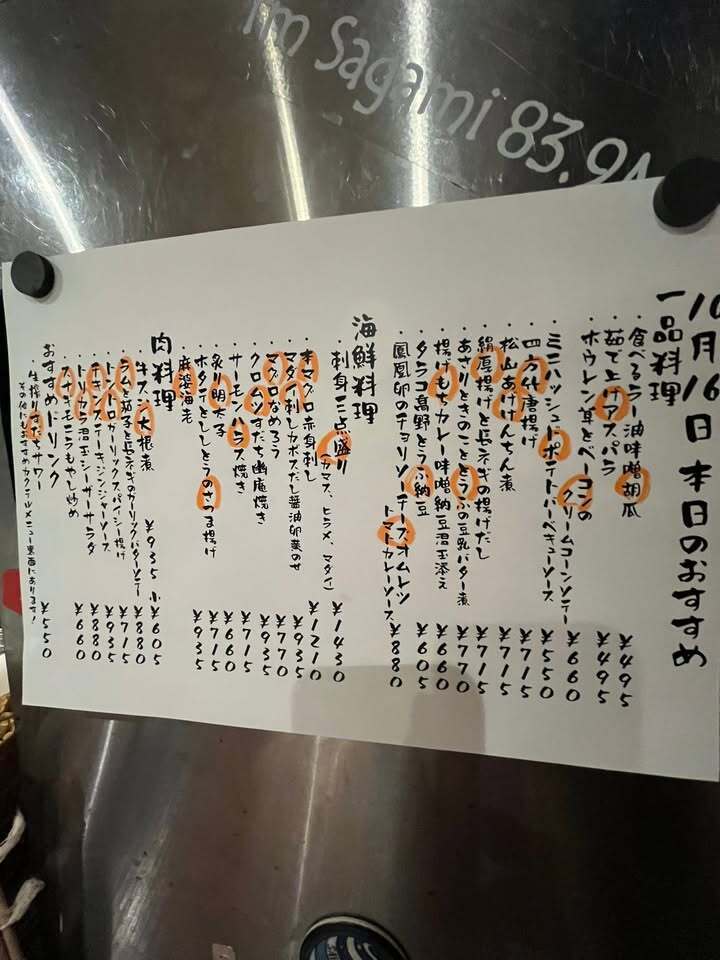 I'm Sagami 83.9
10月16日 本日のおすすめ
一品料理
・食べるラー油味噌胡瓜 ¥495
・茹で上げアスパラ ¥495
・ホウレン草とベーコンの
クリームコーンソテー ¥660
・ミニハッシュドポテトバーベキューソース ¥550
・四方竹唐揚げ ¥715
・松山あげけんちん煮 ¥715
・絹厚揚げと長ネギの揚げだし ¥715
・あさりときのことうふの豆乳バター煮 ¥770
・揚げもちカレー味噌納豆君玉添え ¥660
・タラコ高野とうふ納豆 ¥605
・鳳凰卵のチョリソーチーズオムレツ
トマトカレーソース ¥880
海鮮料理
・刺身三点盛り(カマス、ヒラメ、マダイ) ¥1430
・本マグロ赤身刺し ¥1210
・マダイ刺しカボスだし醤油卵黄のせ ¥935
・マグロなめろう ¥770
・クロムツすだち幽庵焼き ¥935
・サーモンハラス焼き ¥715
・炙り明太子 ¥660
・ホタテとししとうのさつま揚げ ¥715
・麻婆海老 ¥935
肉料理
・牛スジ大根煮 ¥935 小¥605
・ラムと茄子と長ネギのガーリックバターソテー ¥880
・トントロガーリックスパイシー揚げ ¥715
・チキンステーキジンジャーソース ¥935
・トリハラ君玉シーザーサラダ ¥880
・スナギモニラもやし炒め ¥660
おすすめドリンク
・生搾りすだちサワー ¥550
その他にもおすすめカクテルメニュー裏面にあります!